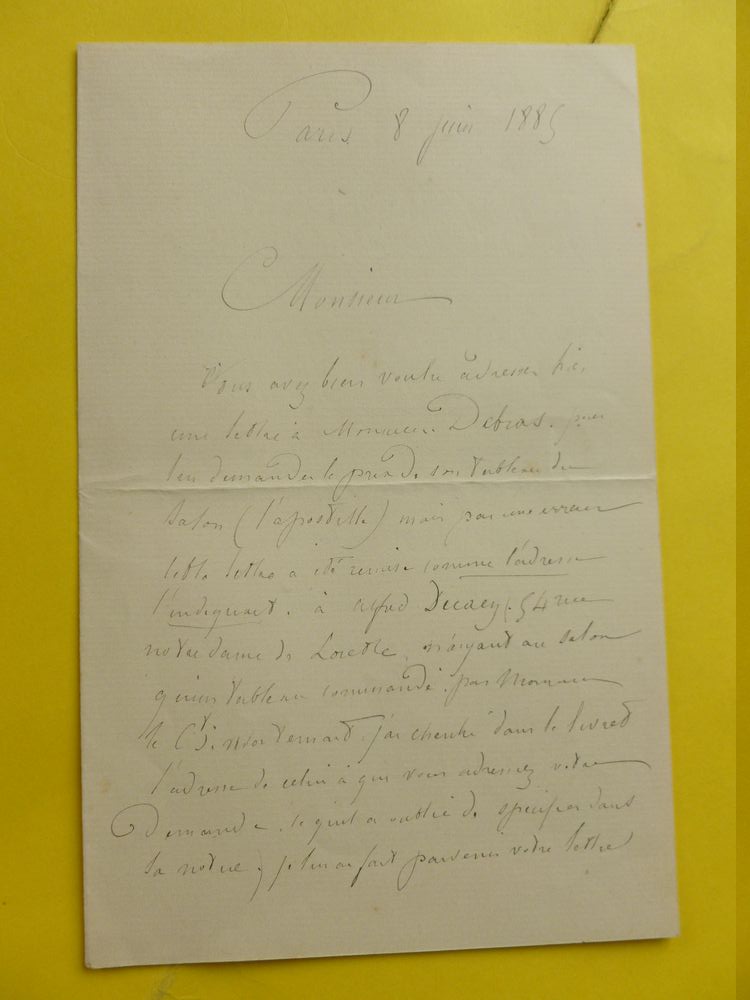 Paris 8 juin 1885
Monsieur
Vous avez bien voulu adresser hier
une lettre à Monsieur Debras. pour
lui demander le prix de son tableau du
salon (l'apostille) mais par une erreur
cette lettre a été remise comme l'adresse
l'indiquait. à Alfred Decaen. 54 rue
notre dame de Lorette, n'ayant au salon
qu'un tableau commandé par Monsieur
le Cte de j'ai cherché dans le livret
l'adresse de celui à qui vous adressez votre
Demande. ce qu'il a oublié de spécifier dans
sa notice, je lui ai fait parvenir votre lettre